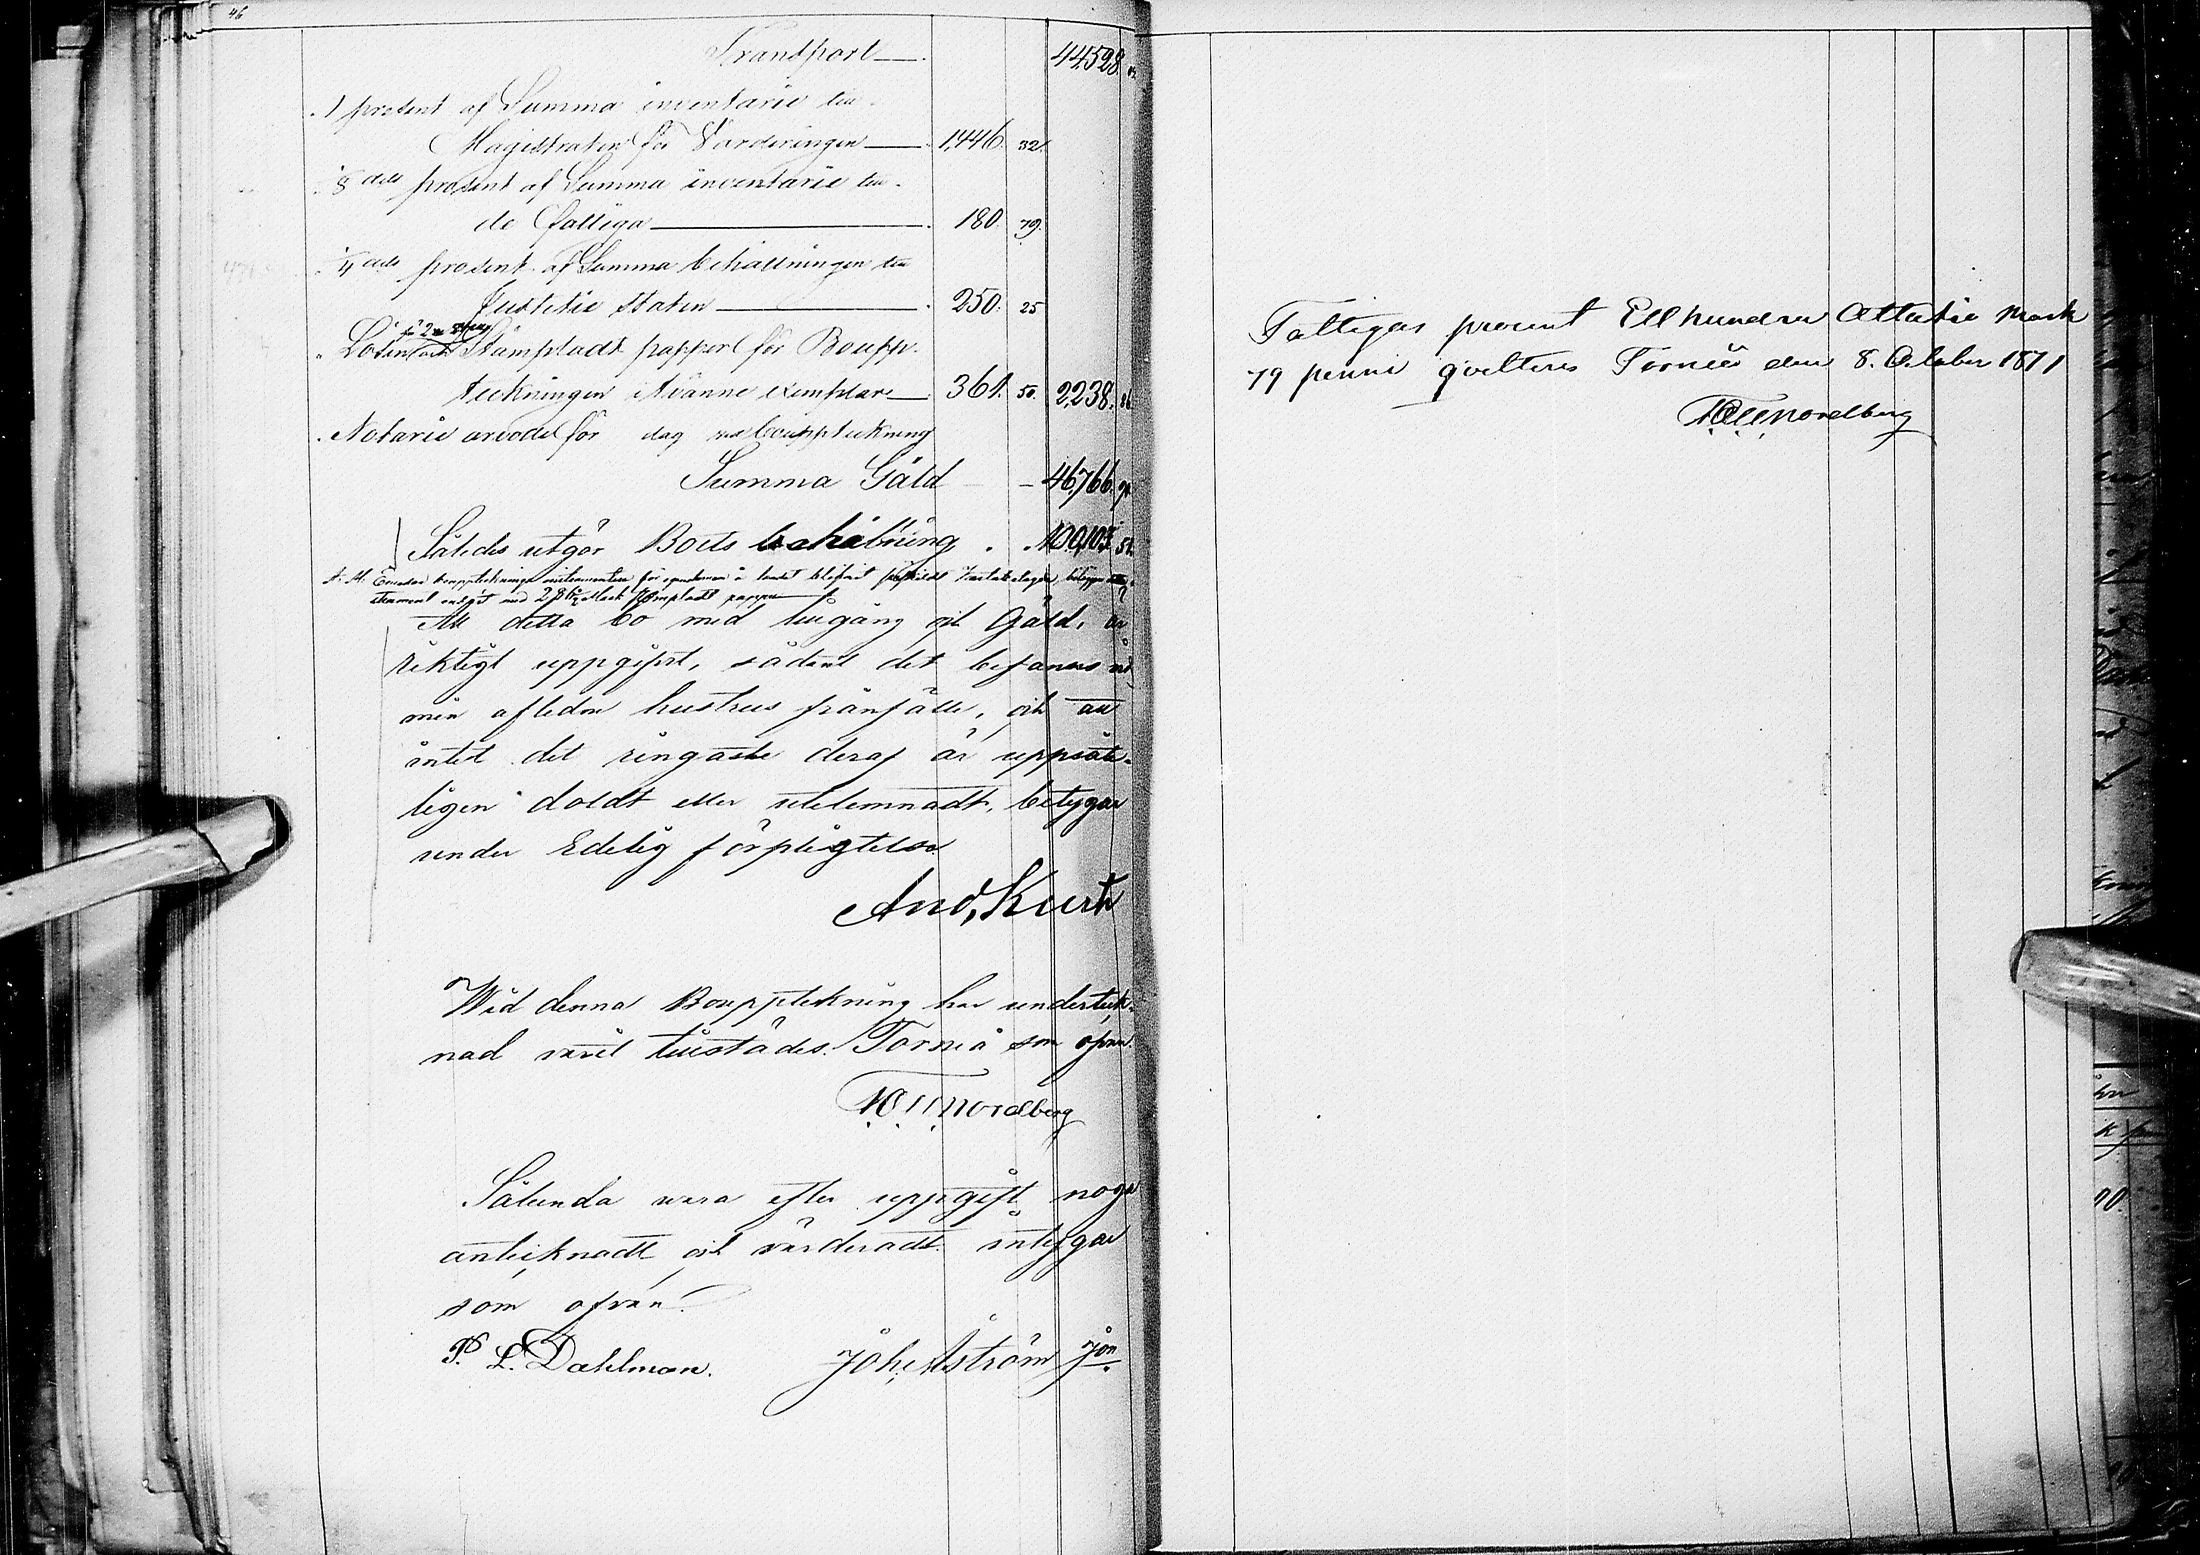 46
Transport 44528.
1 prosent af Summa inventarie till
Magistraten för Värderingen 1,446. 32.
8 dels prosent af Summa inventarie till
de fattiga 180. 79.
4 dels prosent af Summa behållningen till
Justitie staten 250. 25
Lösen för Stämpladt papper för Boupp-
teckningen i tvänne exemplar 361. 50. 2,238. 86
Notarie arvode för dag vid bouppteckning
Summa Gäld 46,766.
Således utgör Boets behållning 100,103 51.
Stämpladt papper
Att detta bo med tillgång och Gäld, är
riktigt uppgifvit, sådant det befanns vid
min aflidne hustrus frånfälle, och att
intet det ringaste deraf är uppsåt-
ligen doldt eller utelemnadt, betygar
under Edelig förpligtelse.
And. Kurth
Wid denna Bouppteckning har underteck-
nad varit tillstädes. Torneå som ofvan.
Nordberg
Sålunda vara efter uppgift noga
anteiknadt och värderadt intygar
som ofvan.
P. L. Dahlman. Joh. Åström Jon
Fattigas procent Ett hundra Åttatie Mark
79 penni qvitteras Torneå den 8. October 1871
Nordberg